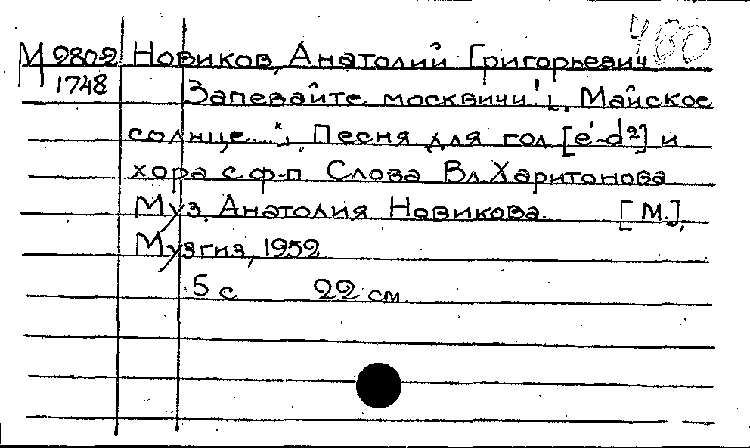 400
М 9802 Новиков, Анатолий Григорьевич
1748 Запевайте москвичи! „Майское
солнце..." Песня для гол [e¹-d²] и
хора с ф-п Слова Вл. Харитонова
Муз. Анатолия Новикова. [М.],
Музгиз, 1952
5 с 22 см.